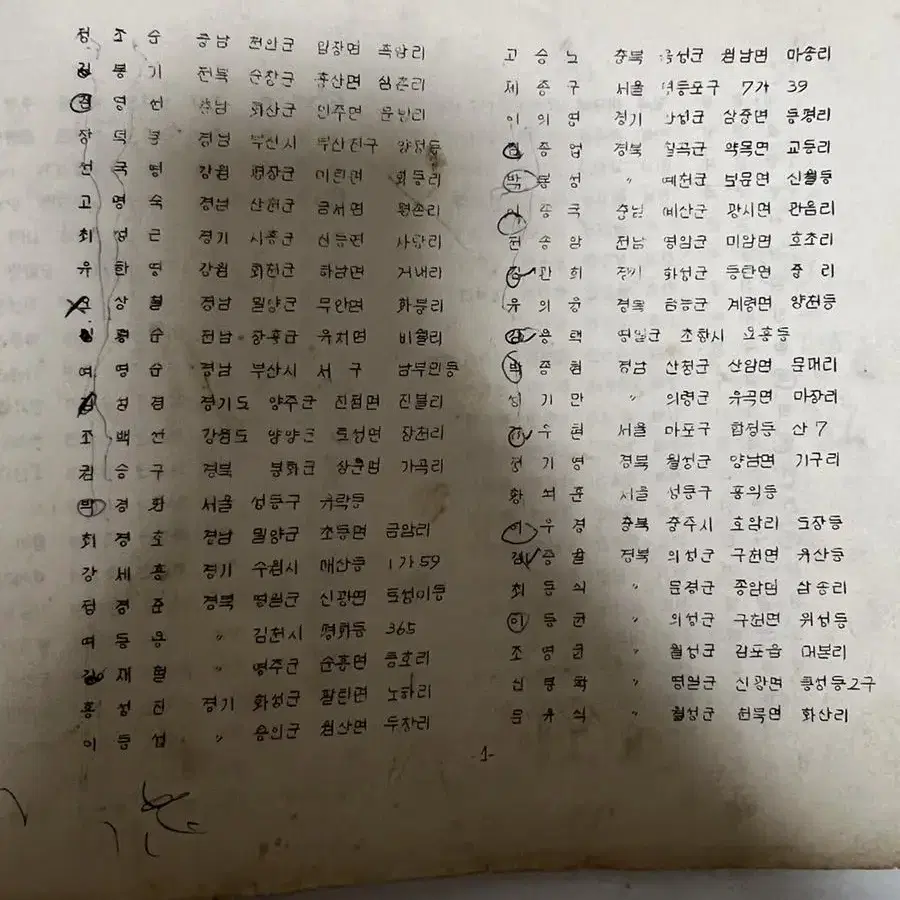 정 조 수 충남 천안군 입장면 흑암리
김 봉 기 전북 순창군 삼촌리
김 영 선 충남
장 덕 봉 경남 부산시 부산진구 양정동
선 국 영 강원 평창군 회동리
고 명 숙 경남 산청군 금서면
최 성 근 경기 시흥군 사당리
유 한 영 강원 화천군 하남면 거내리
상 철 경남 밀양군 무안면 화봉리
전남 장흥군 유치면 비월리
여 영 순 경남 부산시 서 구 남부민동
김 성 경 경기도 양주군 진접면 진블리
조 백 선 강원도 양양군 토성면 장천리
김 승 구 경북 봉화군 가곡리
박 경 환 서울 성동구
최 경 호 경남 밀양군 초동면 금암리
강 세 흥 경기 수원시 매산동 1가 59
정 경 준 경북 영일군 신광면
여 동 용 〃 김천시 평화동 365
김 재 철 〃 영주군 순흥면
홍 성 진 경기 화성군 팔탄면 노하리
이 동 섭 〃 용인군 원산면 두창리
고 승 노 충북 음성군 원남면 마송리
제 종 구 서울 영등포구 7가 39
이 의 영 경기 안성군 삼중면 동평리
김 종 업 경북 칠곡군 약목면 교동리
박 봉 성 〃 예천군 보문면 신월동
이 종 국 충남 예산군 광시면 관음리
천 송 암 전남 영암군 미암면 호초리
김 관 희 경기 화성군 동탄면 중 리
유 의 웅 경북 금능군 계령면 양천동
김 용 택 영일군
박 종 현 경남 산청군 산암면 문대리
성 기 만 〃 의령군 유곡면 마장리
우 현 서울 마포구 합정동 산 7
정 기 영 경북 월성군 양남면 기구리
황 쇠 준 서울 성동구 홍익동
이 우 경 충북 충주시 호암리 도장동
김 종 철 경북 의성군 구천면 유산동
최 동 식 〃 문경군 삼송리
이 동 균 〃 의성군 구천면 위성동
조 영 균 〃 월성군 감포읍 대본리
신 영 학 〃 영일군 신광면 2구
문 유 식 〃 월성군 천북면 화산리
-1-